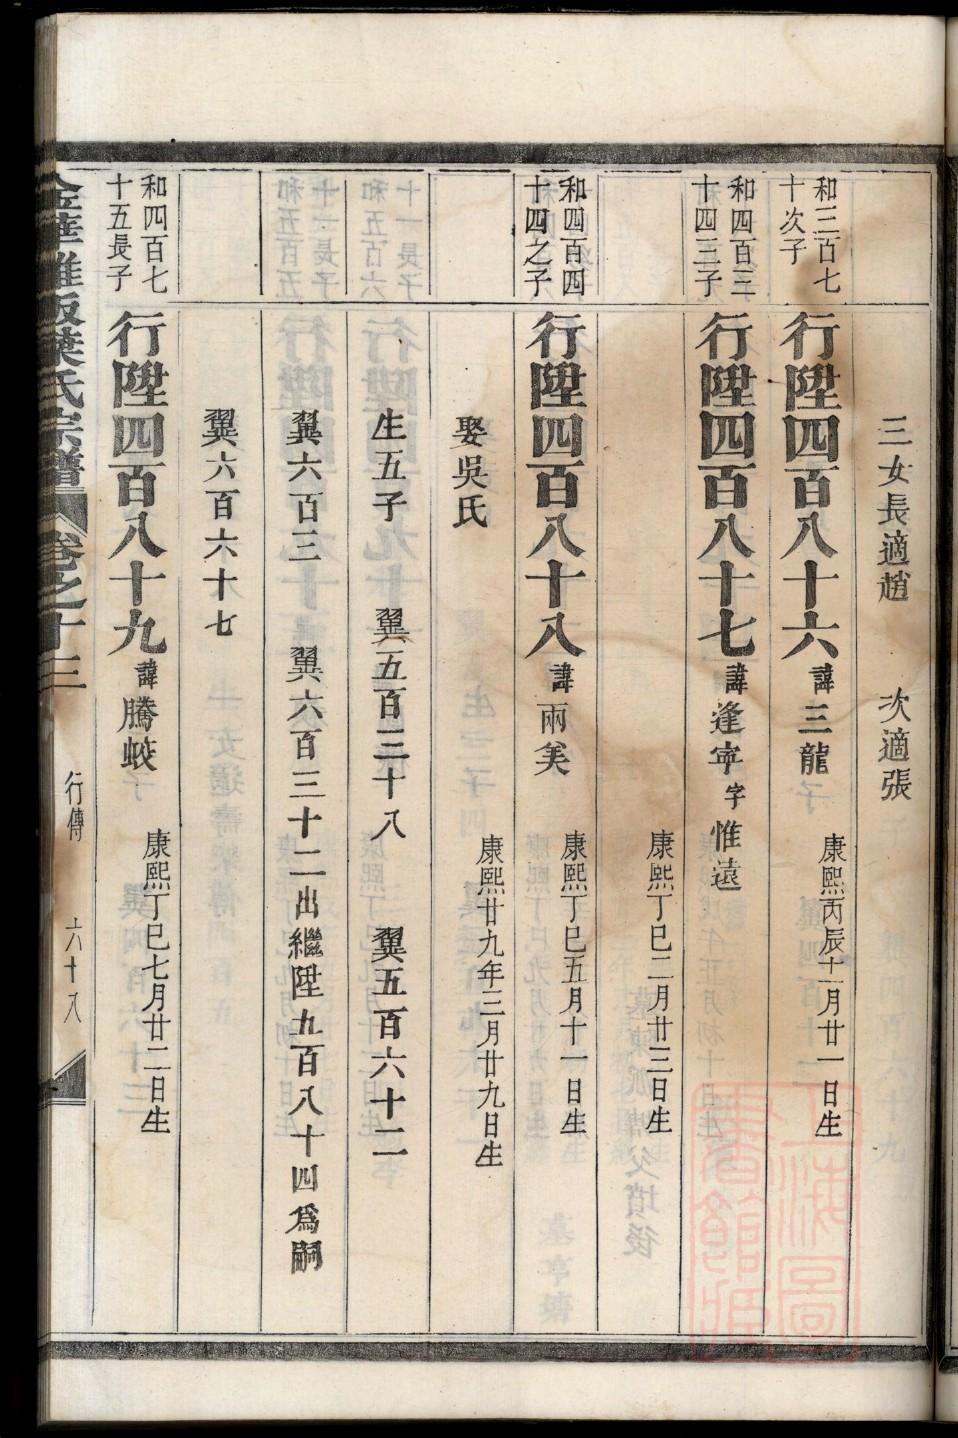 三女長適趙　次適張
和三百七
十次子
行陞四百八十六諱三龍　康熙丙辰十一月廿一日生
和四百三
十四三子
行陞四百八十七諱逢寧字惟遠
康熙丁巳二月廿三日生
和四百四
十四之子
行陞四百八十八諱兩美　康熙丁巳五月十一日生
娶吳氏　康熙廿九年三月廿九日生
生五子　翼五百三十八　翼五百六十二
翼六百三　翼六百三十二出繼陞九百八十四爲嗣
翼六百六十七
和四百七
十五長子
行陞四百八十九諱騰蛟　康熙丁巳七月廿二日生
金華雅畈葉氏宗譜　卷之十三　行傳　六十八
上海圖書館藏